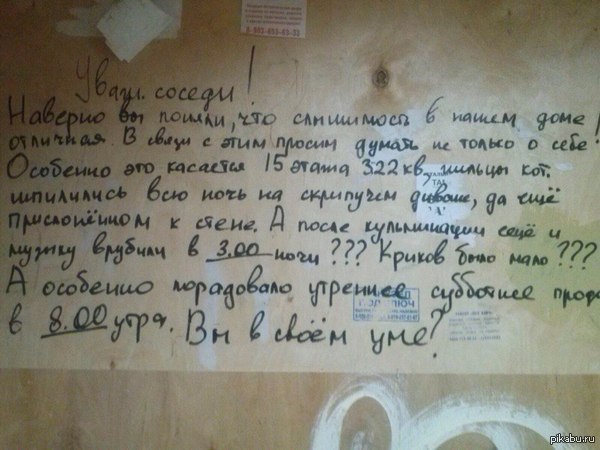 8-903-693-63-33
Уваж. соседи!
Наверно вы поняли, что слышимость в нашем доме
отличная. В связи с этим просим думать не только о себе!
Особенно это касается 15 этажа 322 кв. жильцы кот.
шпилились всю ночь на скрипучем диване, да ещё
прислонённом к стене. А после кульминации ещё и
музыку врубили в 3.00 ночи??? Криков было мало???
А особенно порадовало утреннее субботнее
в 8.00 утра. Вы в своём уме?
pikabu.ru